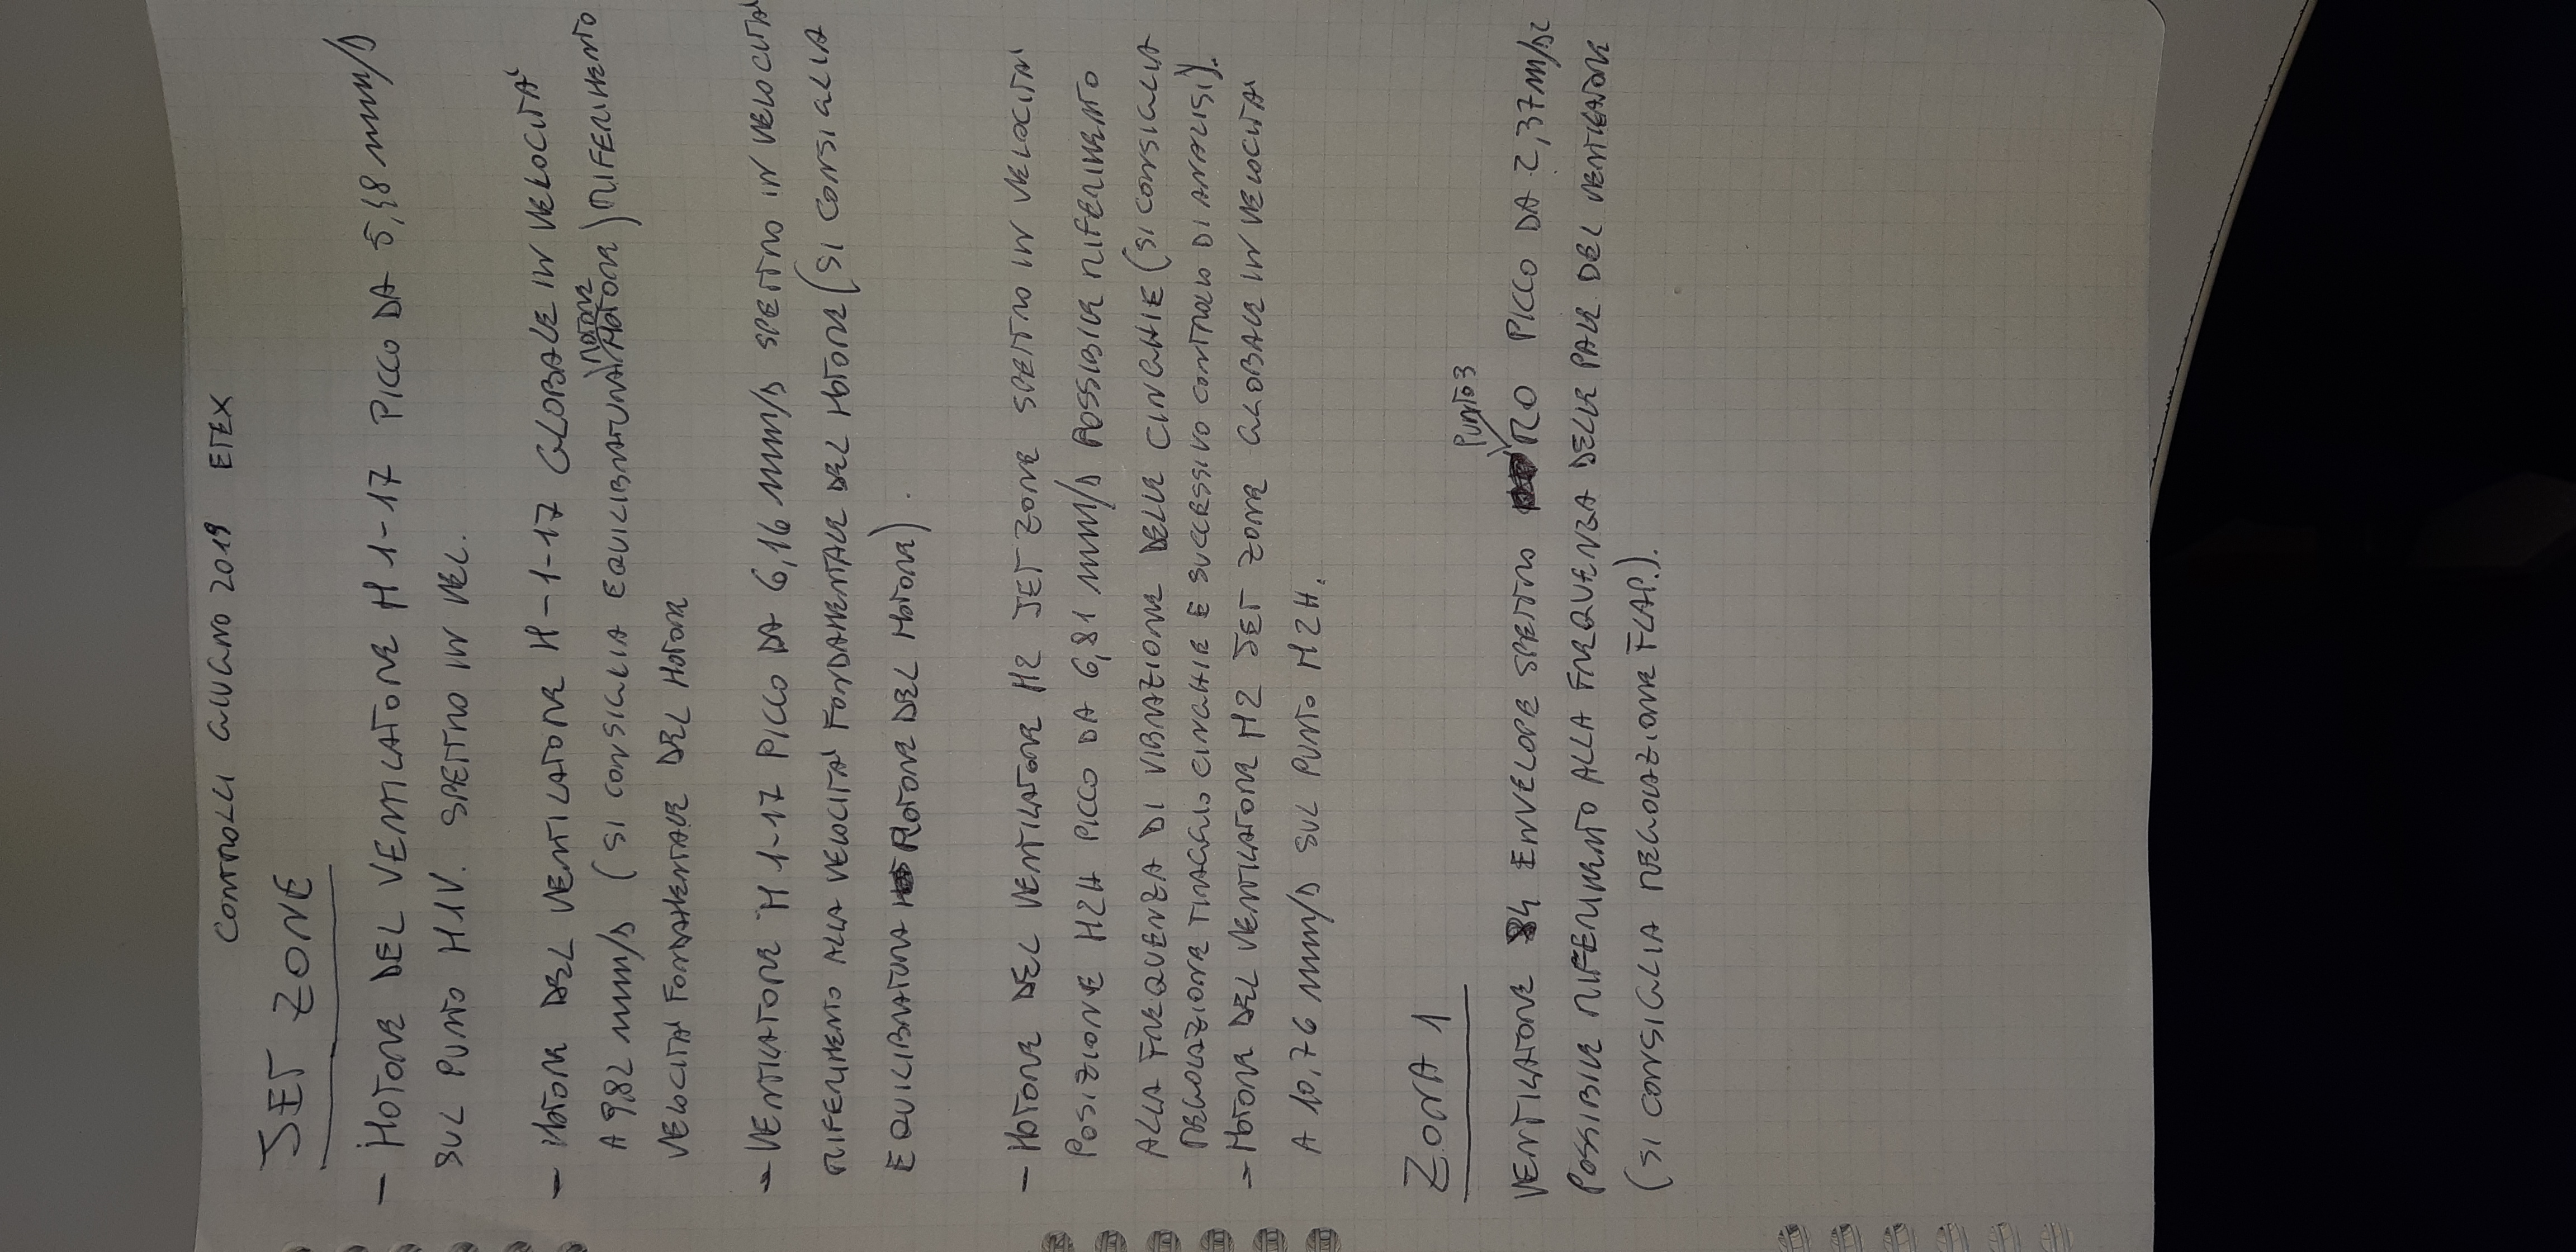 CONTROLLI GIUGNO 2019 ETEX
JET ZONE
- MOTORE DEL VENTILATORE M1-17 PICCO DA 5,18 mm/s
SUL PUNTO M1V. SPETTRO IN VEL.
- MOTORE DEL VENTILATORE M-1-17 GLOBALE IN VELOCITA'
ROTORE
A 9,82 mm/s (SI CONSIGLIA EQUILIBRATURA MOTORE) RIFERIMENTO
VELOCITA' FONDAMENTALE DEL MOTORE
- VENTILATORE M1-17 PICCO DA 6,16 mm/s SPETTRO IN VELOCITA'
RIFERIMENTO ALLA VELOCITA' FONDAMENTALE DEL MOTORE (SI CONSIGLIA
EQUILIBRATURA ROTORE DEL MOTORE).
- MOTORE DEL VENTILATORE M2 JET ZONE SPETTRO IN VELOCITA'
POSIZIONE M2H PICCO DA 6,81 mm/s POSSIBILE RIFERIMENTO
ALLA FREQUENZA DI VIBRAZIONE DELLE CINGHIE (SI CONSIGLIA
REGOLAZIONE TIRAGGIO CINGHIE E SUCCESSIVO CONTROLLO DI ANALISI).
- MOTORE DEL VENTILATORE M2 JET ZONE GLOBALE IN VELOCITA'
A 10,76 mm/s SUL PUNTO M2H.
ZONA 1
PUNTO 3
VENTILATORE 84 ENVELOPE SPETTRO RO PICCO DA 2,37 m/s2
POSSIBILE RIFERIMENTO ALLA FREQUENZA DELLE PALE DEL VENTILATORE
(SI CONSIGLIA REGOLAZIONE FLAP.).